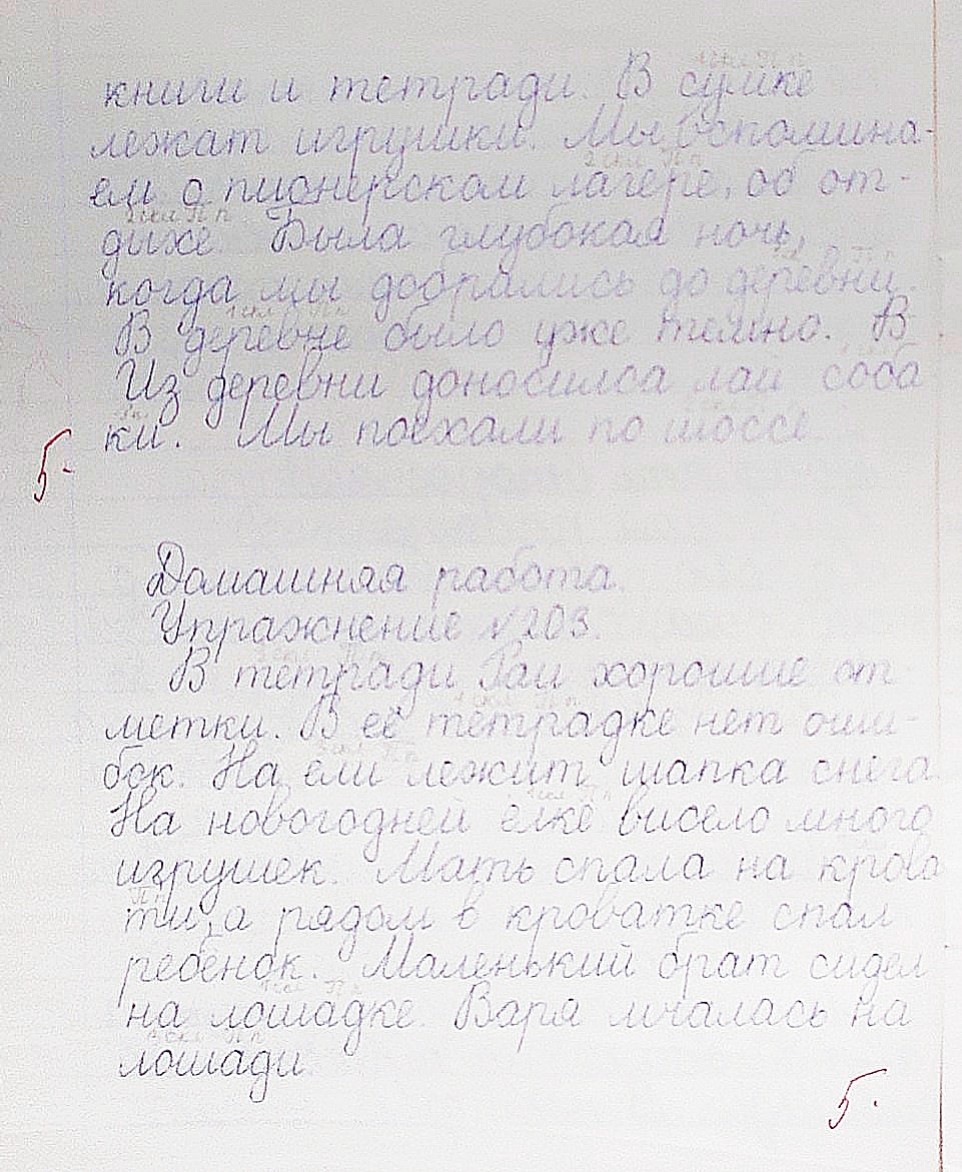 книги и тетради. В сумке
лежат игрушки. Мы вспомина-
ем о пионерском лагере, об от-
дыхе. Была глубокая ночь,
когда мы добрались до деревни.
В деревне было уже темно. В
Из деревни доносился лай соба
ки. Мы поехали по шоссе
5.
Домашняя работа.
Упражнение №203.
В тетради Раи хорошие от
метки. В её тетрадке нет оши-
бок. На ели лежит шапка снега.
На новогодней ёлке висело много
игрушек. Мать спала на крова
ти, а рядом в кроватке спал
ребёнок. Маленький брат сидел
на лошадке. Варя мчалась на
лошади.
5.